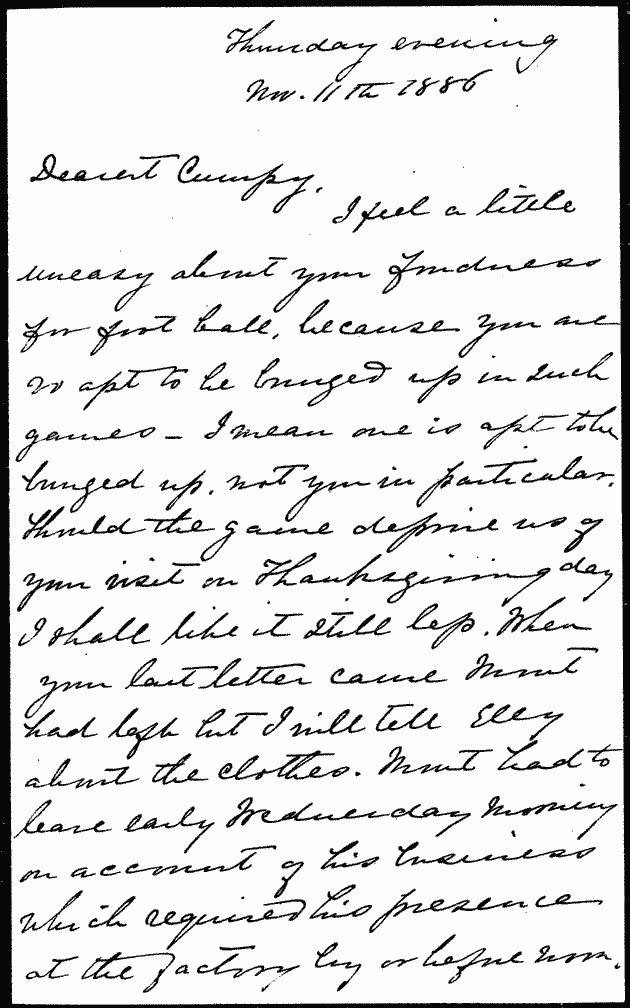 Thursday evening
Nov. 11th 1886
Dearest Cumpy,
I feel a little
uneasy about your fondness
for foot ball, because you are
so apt to be bunged up in such
games – I mean one is apt to be
bunged up, not you in particular.
Should the game deprive us of
your visit on Thanksgiving day
I shall like it still less. When
your last letter came Mount
had left but I will tell Elly
about the clothes. Mount had to
leave early Wednesday morning
on account of his business
which required his presence
at the factory by or before noon.